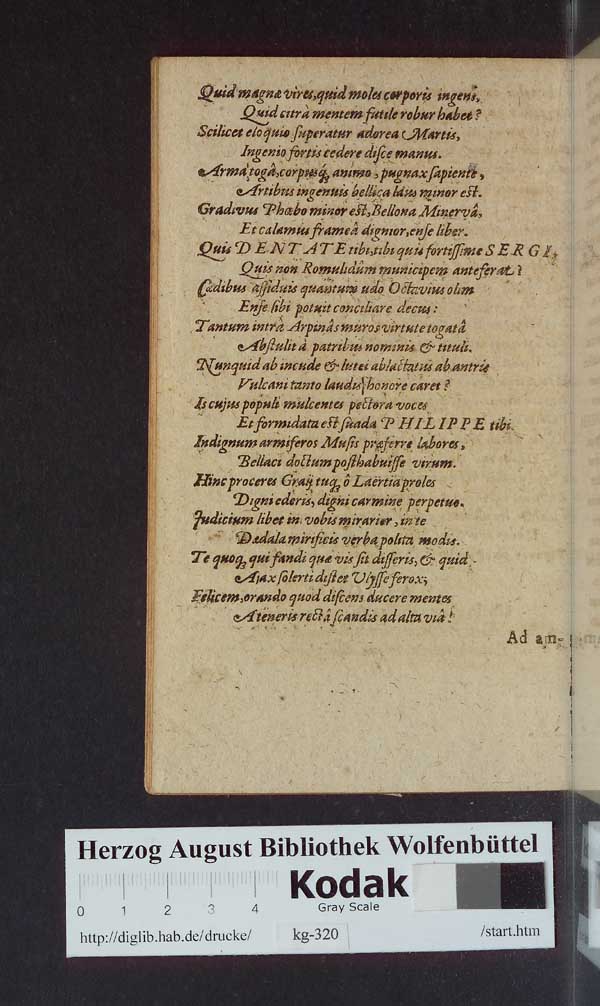 Quid magnæ vires, quid moles corporis ingens,
Quid citrà mentem futile robur habet?
Scilicet eloquio ſuperatur adorea Martis,
Ingenio fortis cedere diſce manus.
Arma togâ, corpusq́; animo, pugnax ſapiente,
Artibus ingenuis bellica laus minor eſt.
Gradivus Phœbo minor eſt, Bellona Minervâ,
Et calamus frameâ dignior, enſe liber.
Quis DENTATE tibi, tibi quis fortiſſime SERGI,
Quis non Romulidûm municipem anteferat?
Cædibus aſſiduis quantum udo Octavius olim
Enſe ſibi potuit conciliare decus:
Tantum intrà Arpinâs muros virtute togatâ
Abſtulit à patribus nominis & tituli.
Nunquid ab incude & lutei ablactatus ab antris
Vulcani tanto laudis honore caret?
Is cujus populi mulcentes pectora voces
Et formidata eſt ſuada PHILIPPE tibi.
Indignum armiferos Muſis præferre labores,
Bellaci doctum poſthabuiſſe virum.
Hinc proceres Graij tuq́; ô Laërtia proles
Digni ederis, digni carmine perpetuo.
Judicium libet in vobis mirarier, in te
Dædala mirificis verba polita modis.
Te quoq́; qui fandi quæ vis ſit diſſeris, & quid
Ajax ſolerti diſtet Ulyſſe ferox;
Felicem, orando quod diſcens ducere mentes
A teneris rectâ ſcandis ad alta viâ!
Ad am-
Herzog August Bibliothek Wolfenbüttel
Kodak
Gray Scale
0 1 2 3 4
http://diglib.hab.de/drucke/ kg-320 /start.htm